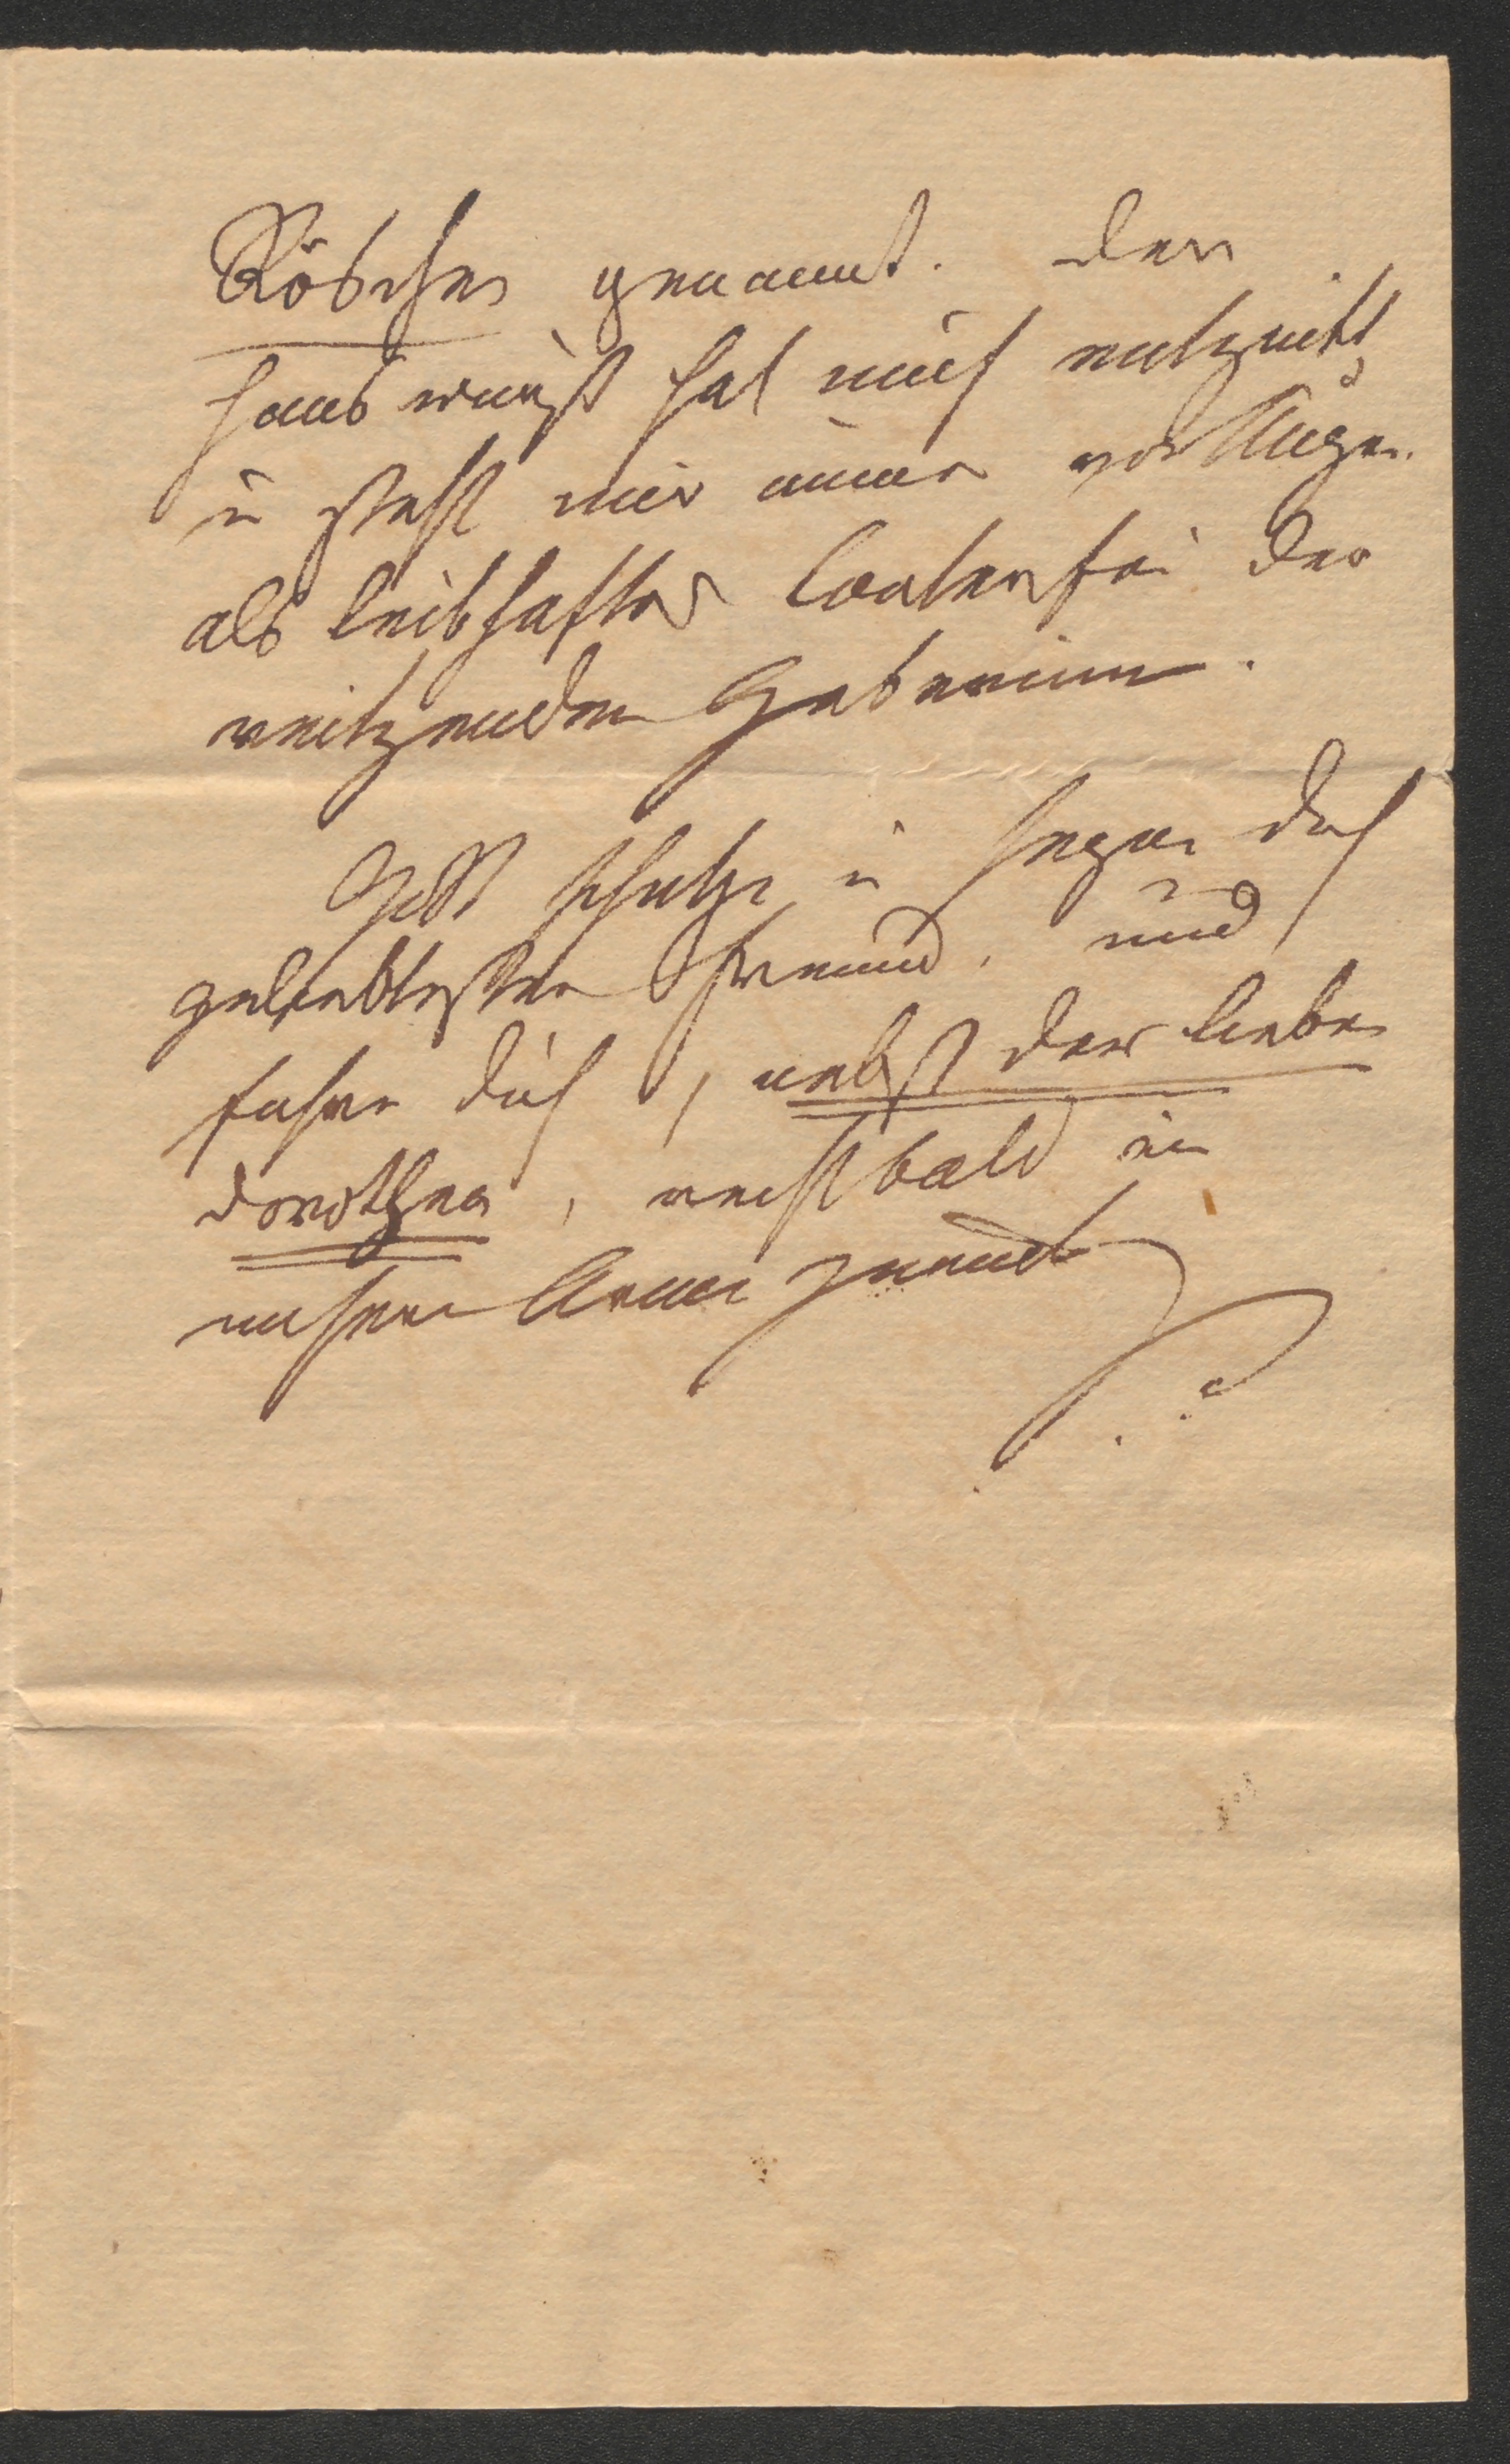 Röschen genannt. Der
Hanswurst hat mich entzückt
u steht mir immer vor Augen
als leibhaftes Conterfei der
reitzenden Geberinn.
Gott schütze u segne dich
geliebtester Freund. und
führe dich, nebst der lieben
Dorothea, recht bald in
unsere Arme zurück